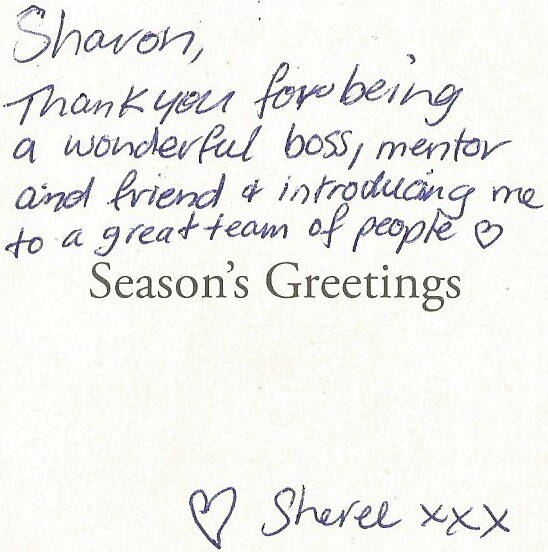 Sharon,
Thank you for being
a wonderful boss, mentor
and friend & introducing me
to a great team of people ♡
Season's Greetings
♡ Sheree xxx